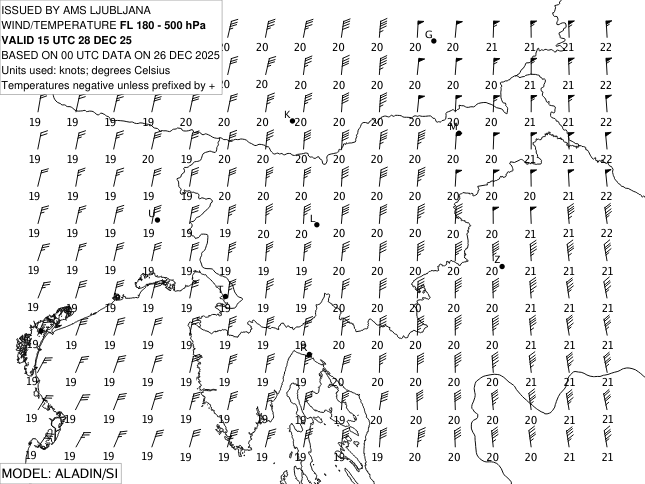 ISSUED BY AMS LJUBLJANA
WIND/TEMPERATURE FL 180 - 500 hPa
VALID 15 UTC 28 DEC 25
BASED ON 00 UTC DATA ON 26 DEC 2025
Units used: knots; degrees Celsius
Temperatures negative unless prefixed by +
G
20 20 20 20 20 20 21 21 21 22
20 20 20 20 20 20 20 21 21 22
K
19 19 19 19 19 20 20 20 20 20 20 20 20 21 21 22
M
19 19 19 20 19 20 20 20 20 20 20 20 20 21 21 22
19 19 19 19 19 20 20 20 20 20 20 20 20 21 21 22
U
L
19 19 19 19 19 19 20 20 20 20 20 20 20 21 21 22
Z
19 19 19 19 19 19 19 19 20 20 20 20 20 21 21 21
T
19 19 19 19 19 19 19 19 20 20 20 20 20 21 21 21
R
19 19 19 19 19 19 19 19 20 20 20 20 20 21 21 21
19 19 19 19 19 19 19 19 20 20 20 20 20 21 21 21
19 19 19 19 19 19 19 19 19 20 20 20 20 21 21 21
19 19 19 19 19 19 19 19 19 20 20 20 20 21 21 21
MODEL: ALADIN/SI